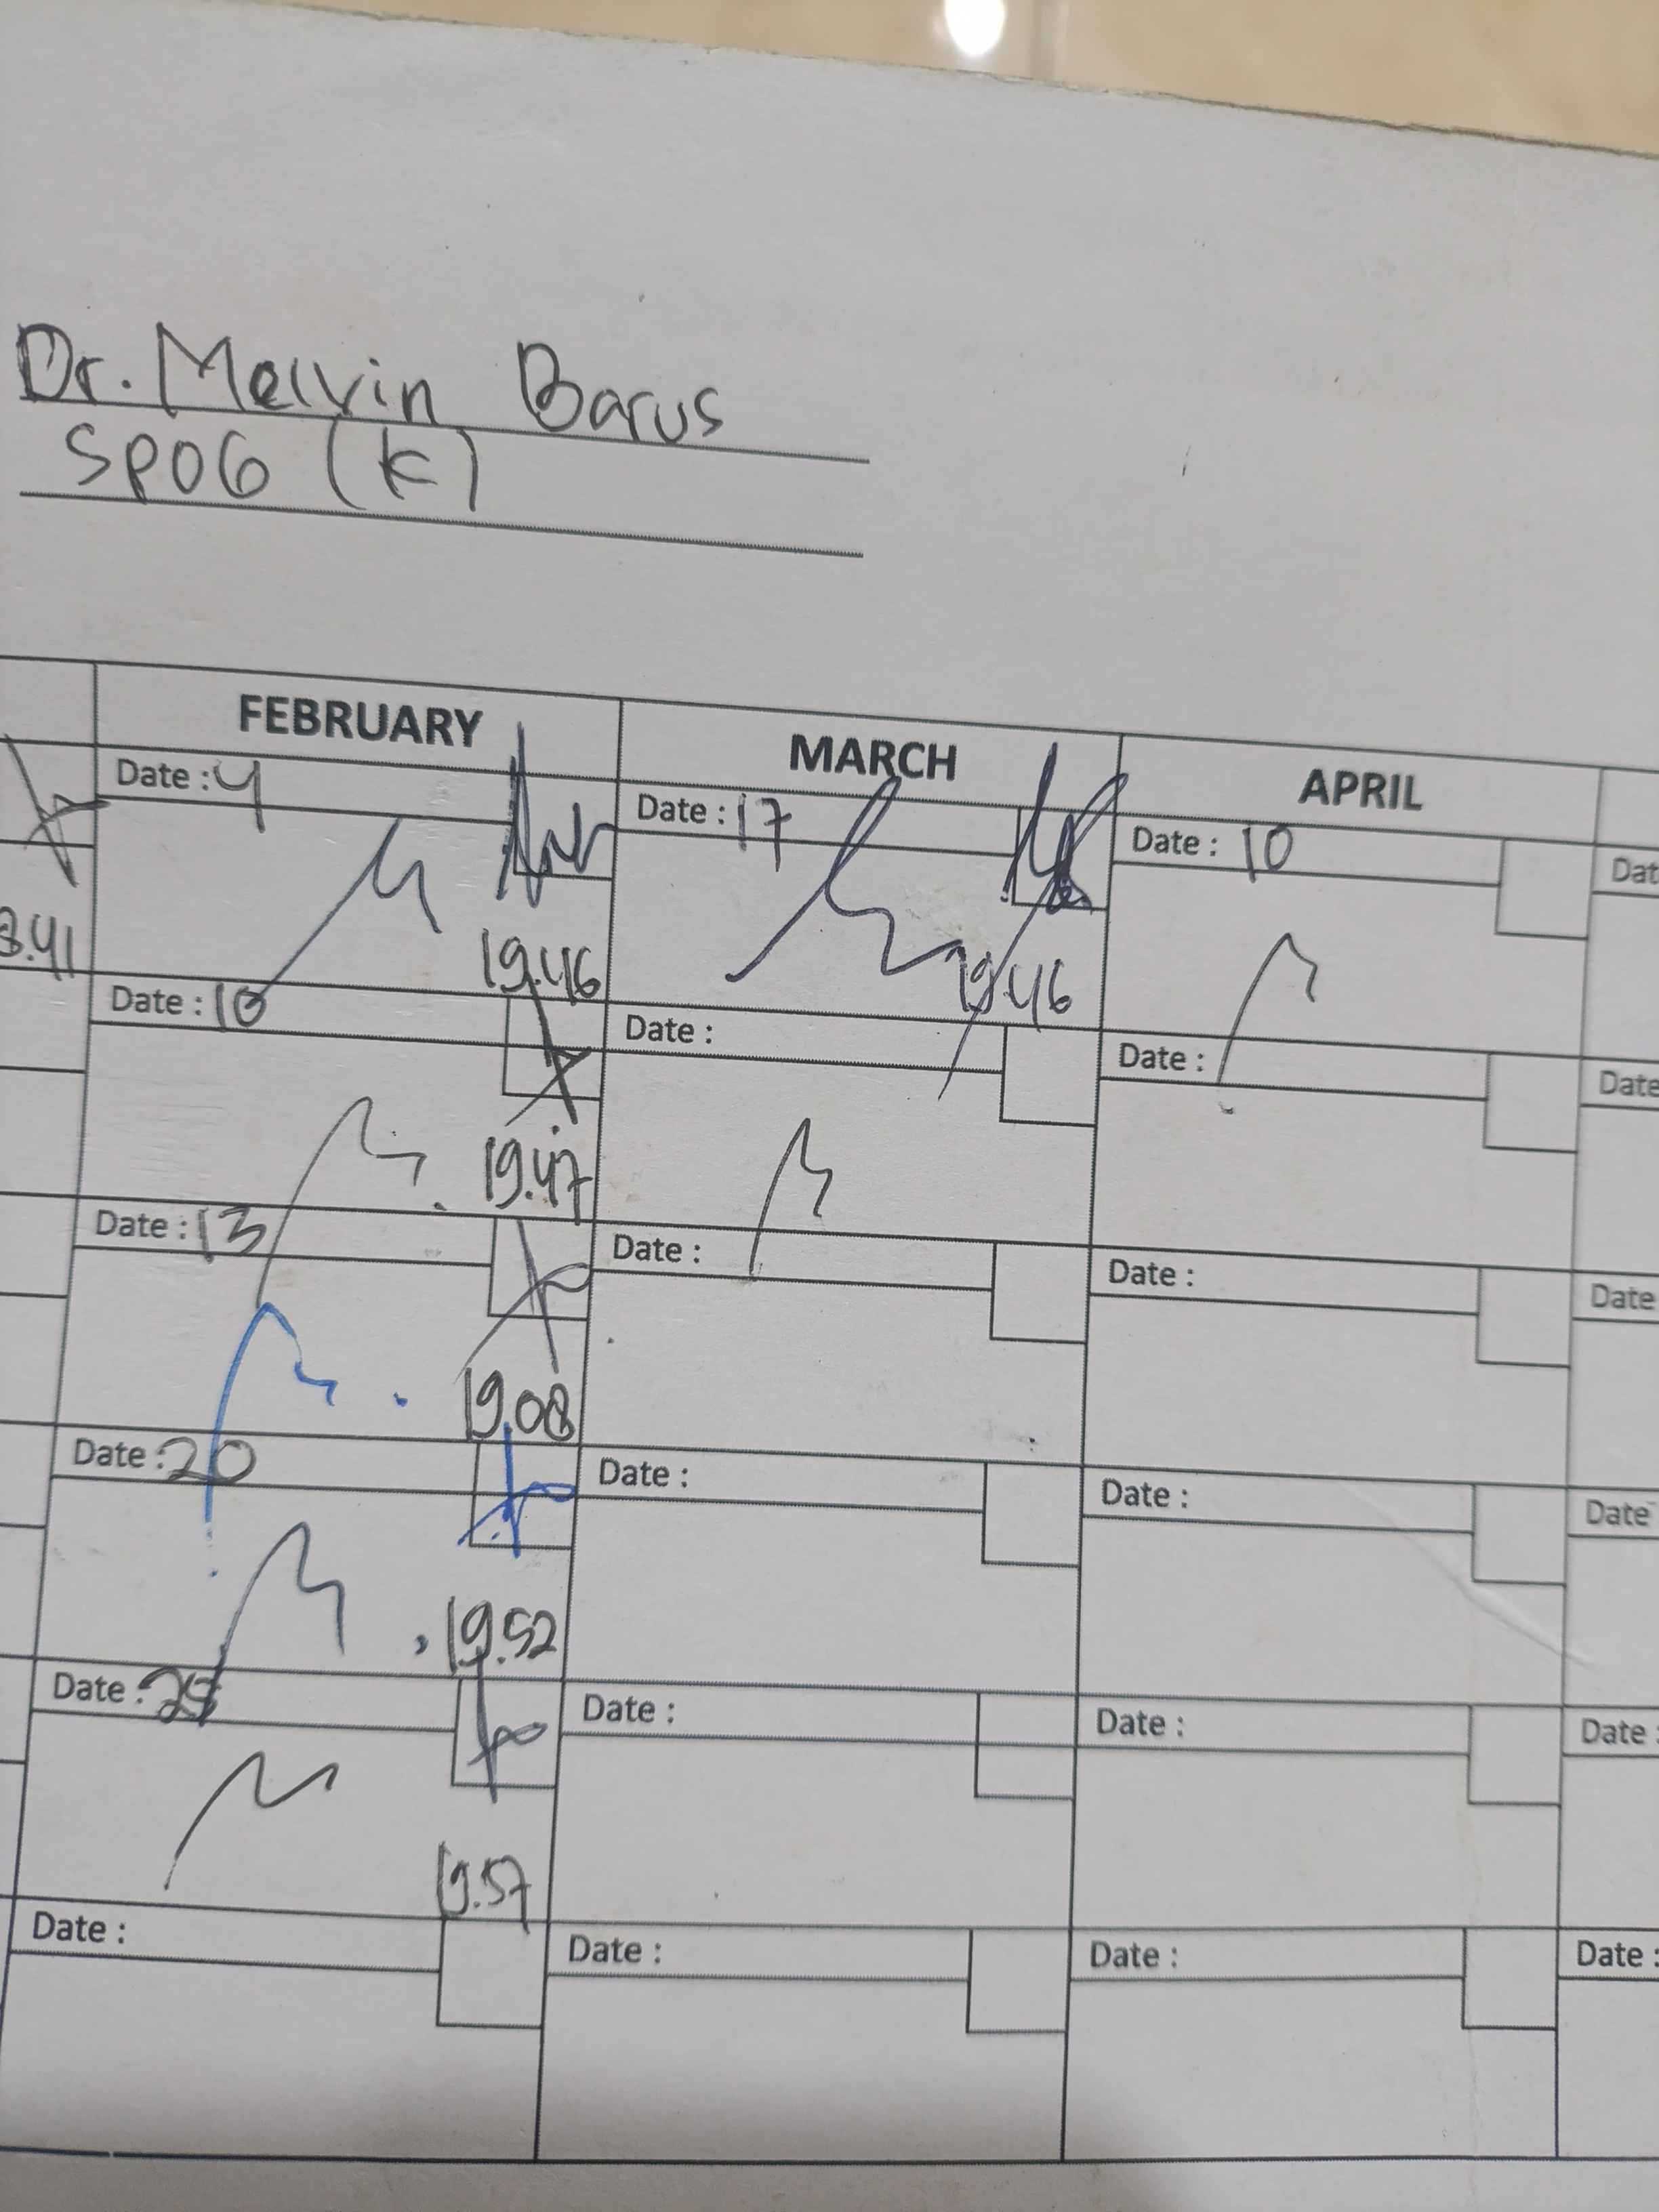 Dr. Melvin Barus
SPOG (K)
FEBRUARY MARCH APRIL
Date : 4 Date : 17 Date : 10 Dat
19.46 19.46
Date : 10 Date : Date : Date
19.47
Date : 13 Date : Date : Date
19.08
Date : 20 Date : Date : Date
19.52
Date : Date : Date : Date :
19.57
Date : Date : Date : Date :